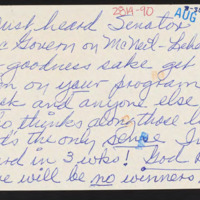 2814-90
AUG
ust heard Senator
c Govern on McNeil-Lehr
- goodness sake get
m on your program
sk and anyone else
o thinks along those l
t's the only sense I
rd in 3 wks! God
re will be no winners!